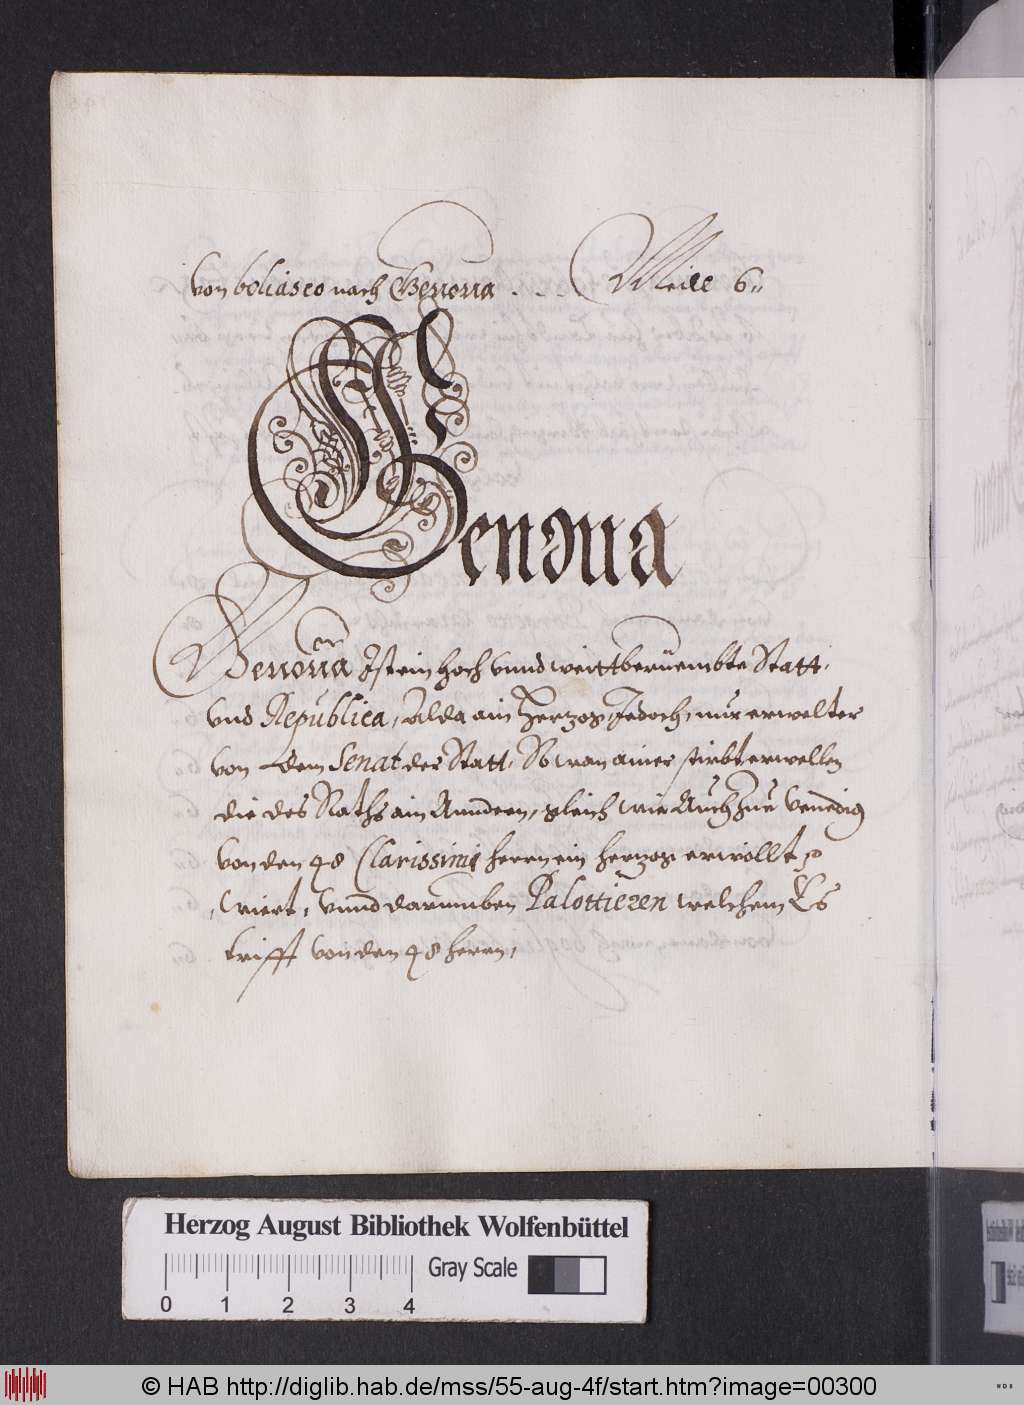 von boliasco nach Genoua . . . . Meile 6"
Genoua
Genoua Ist ein hoch vnnd weittberüembte Statt,
vnd Republica, Alda ain Herzog, Jedoch, nur erwelter
von dem Senat der Statt, So wan ainer stirbt erwellen
die des Raths ain Anndern, gleich wie Auch zue Venedig
von den 48 Clarissimi herrn ein herzog erwöllt
wiert, vnnd darumben Palottieren welchem Es
trifft von den 48 herrn,
Herzog August Bibliothek Wolfenbüttel
Gray Scale
0 1 2 3 4
© HAB http://diglib.hab.de/mss/55-aug-4f/start.htm?image=00300